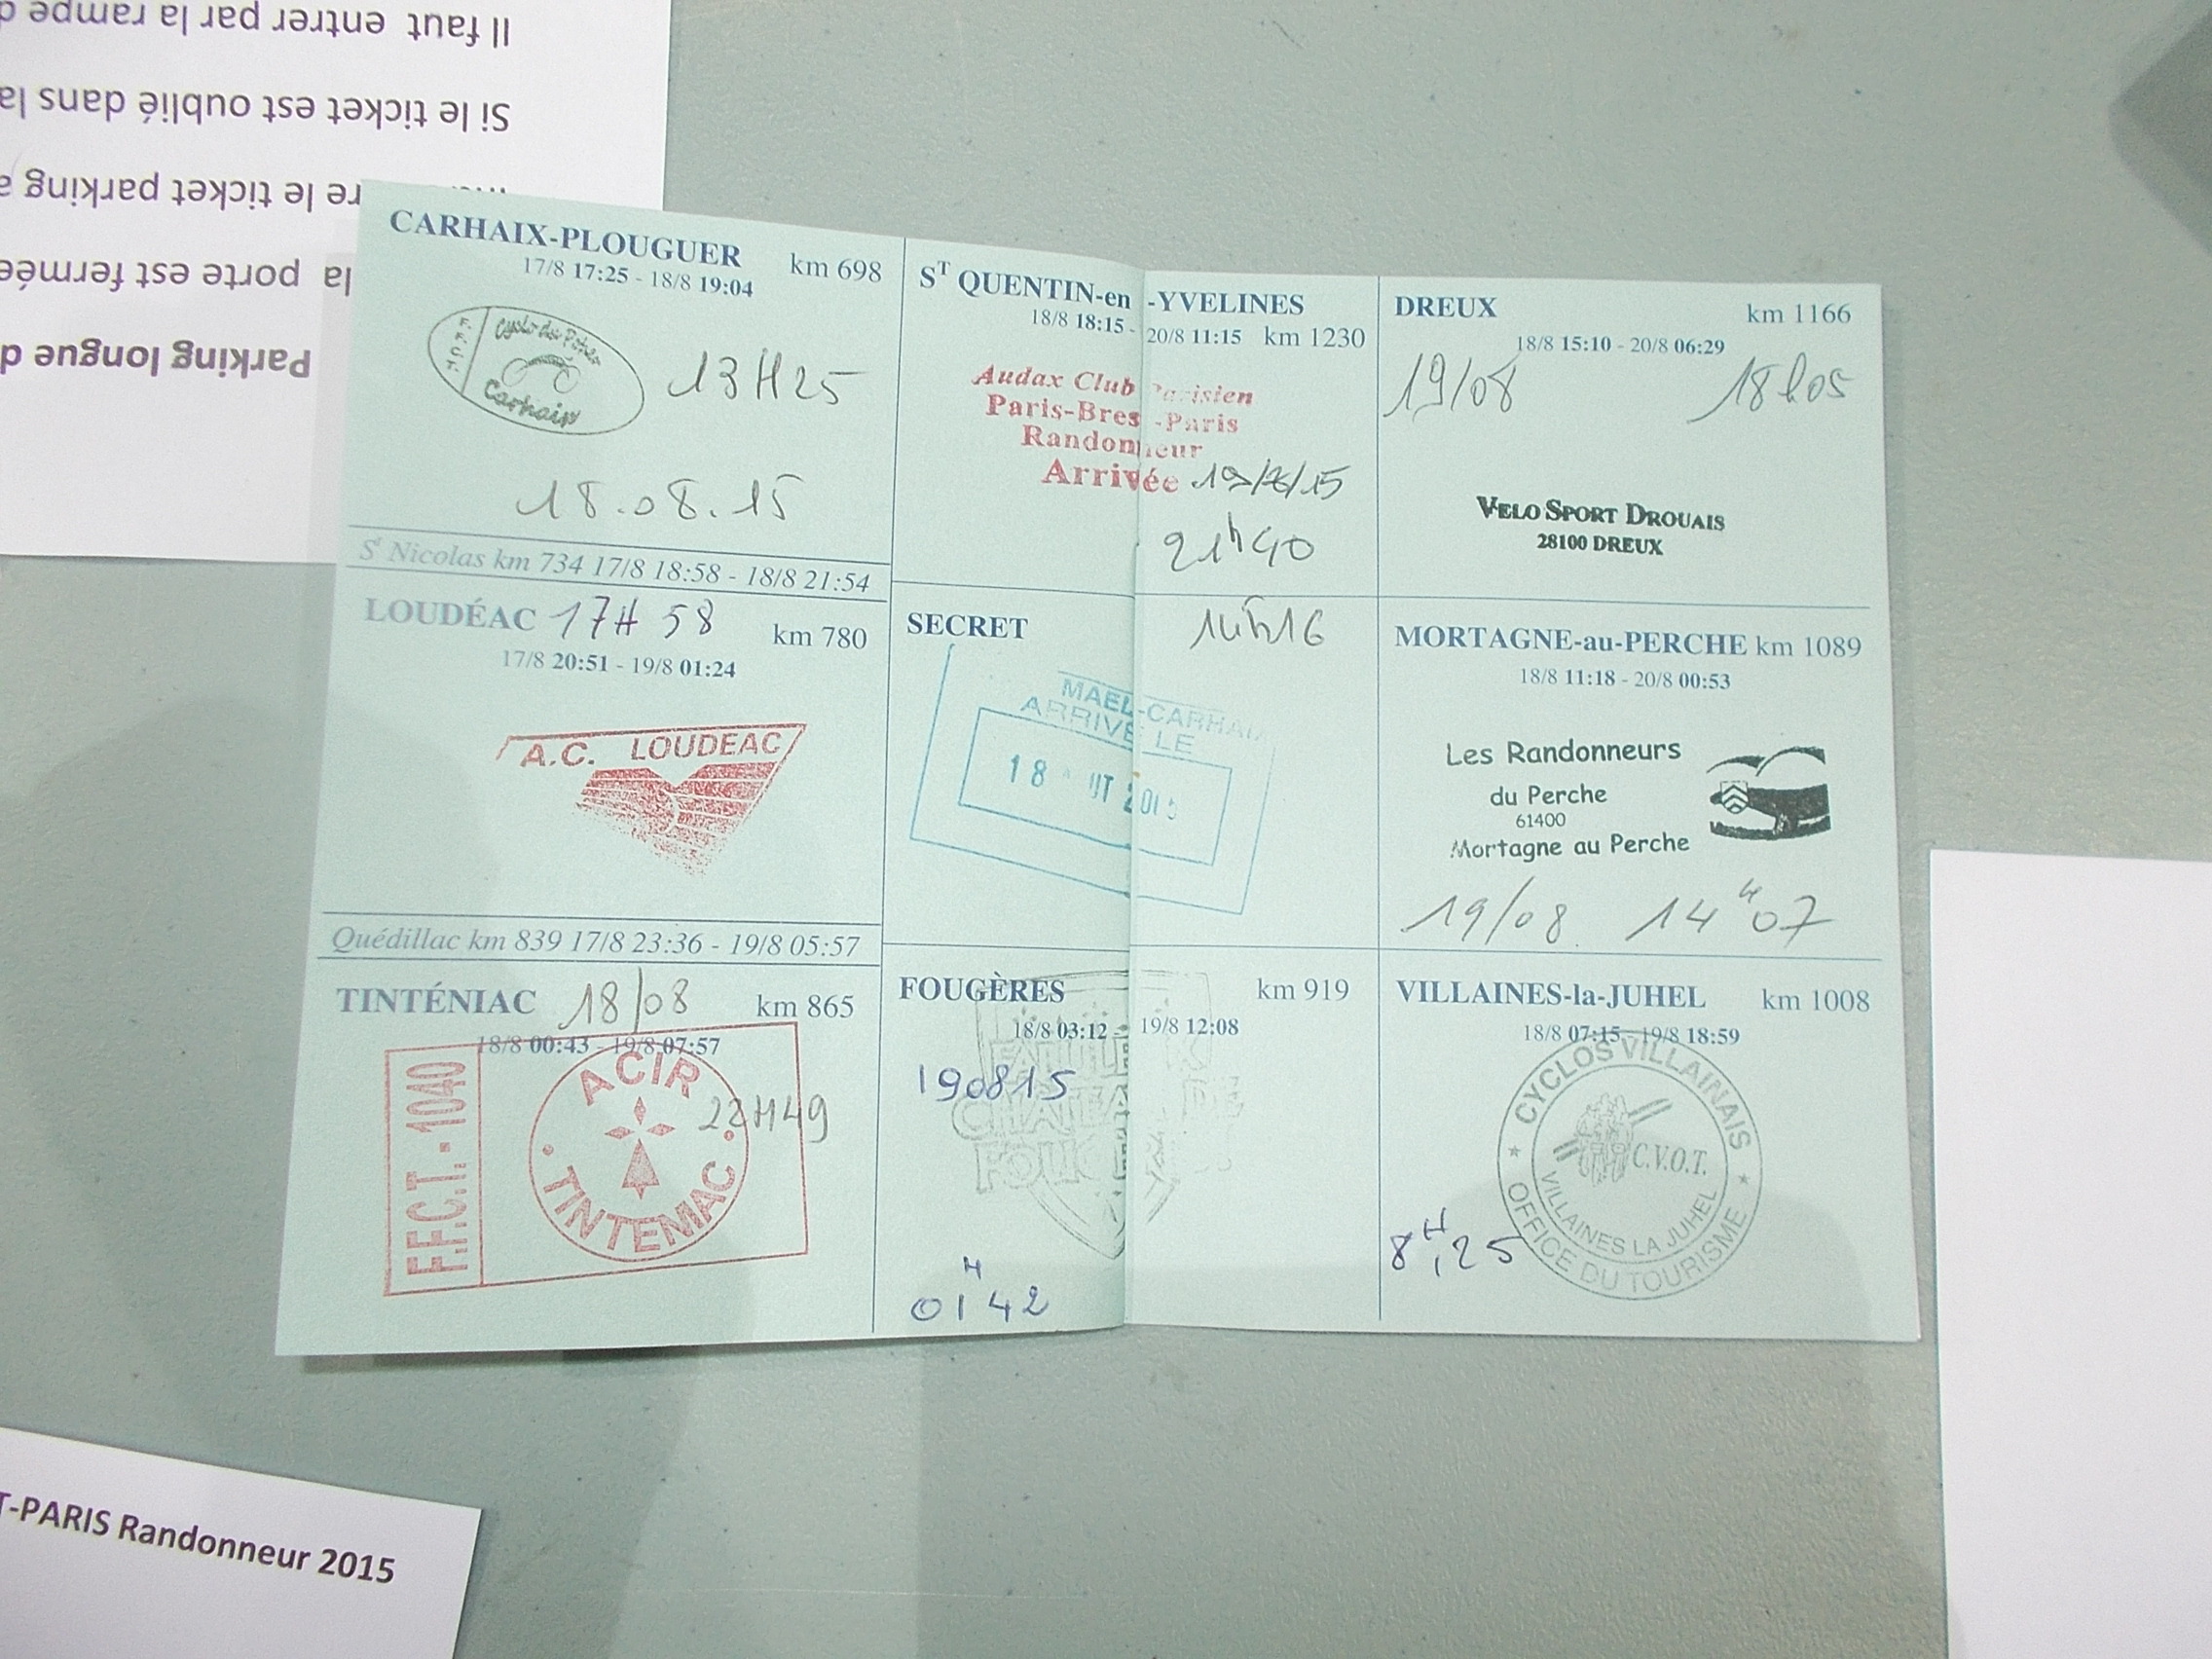 Il faut entrer par la rampe
Si le ticket est oublié dans la
re le ticket parking
la porte est fermée
Parking longue
CARHAIX-PLOUGUER km 698
17/8 17:25 - 18/8 19:04
Cyclo des
Carhaix
13H25
18.08.15
St Nicolas km 734 17/8 18:58 - 18/8 21:54
LOUDÉAC 17H 58 km 780
17/8 20:51 - 19/8 01:24
A.C. LOUDEAC
Quédillac km 839 17/8 23:36 - 19/8 05:57
TINTÉNIAC 18/08 km 865
18/8 00:43 - 19/8 07:57
F.F.C.T. - 1040
ACIR
TINTENIAC
22H49
ST QUENTIN-en-YVELINES
18/8 18:15 - 20/8 11:15 km 1230
Audax Club Parisien
Paris-Brest-Paris
Randonneur
Arrivée 19/8/15
21h40
SECRET 14h16
MAEL-CARHAIX
ARRIVE LE
18 2015
FOUGÈRES km 919
18/8 03:12 - 19/8 12:08
190815
CHATEAU DE
FOUGERES
01H42
DREUX km 1166
18/8 15:10 - 20/8 06:29
19/08 18h05
VELO SPORT DROUAIS
28100 DREUX
MORTAGNE-au-PERCHE km 1089
18/8 11:18 - 20/8 00:53
Les Randonneurs
du Perche
61400
Mortagne au Perche
19/08 14H07
VILLAINES-la-JUHEL km 1008
18/8 07:15 - 19/8 18:59
CYCLOS VILLAINAIS
C.V.O.T.
VILLAINES LA JUHEL
OFFICE DU TOURISME
8H25
T-PARIS Randonneur 2015